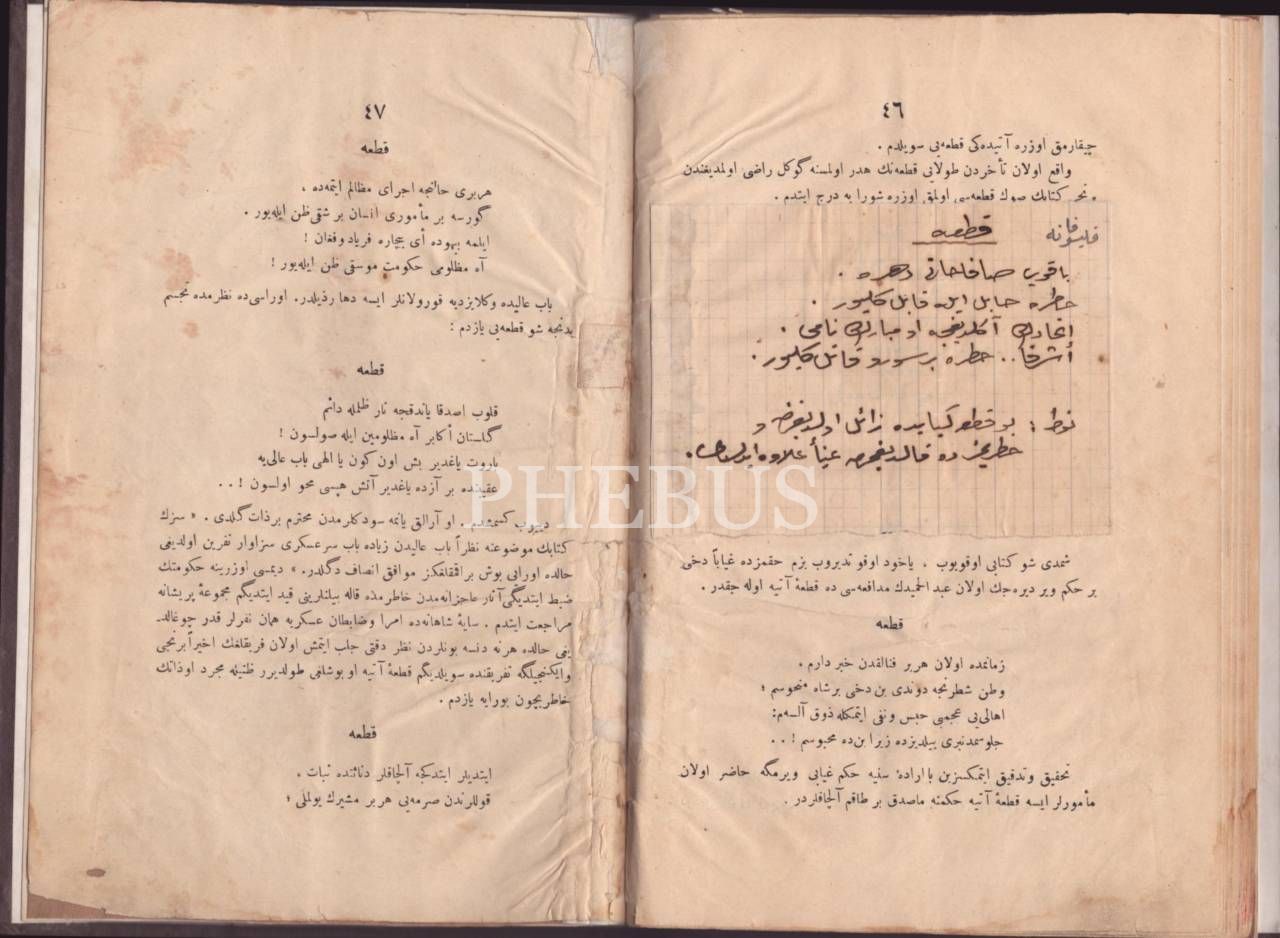 ٤٦
چیقارمق اوزره آتیده‌کی قطعه‌یی سویلدم .
واقع اولان تأخردن طولایی قطعه‌نك هدر اولمسنه گوکل راضی اولمدیغندن
کتابك صوك قطعه‌سی اولمق اوزره شورا یه درج ایتدم .
قطعه
باقوب صافاحاتی دهره .
خطره حابل ایله قابل کلیور .
اتحادك آکلدیغجه او مبارك نامی .
أشرفا .. خطره بر سورو قاتل کلیور .
نوط : بو قطعه کتابده زائل اولدیغندن و
خطریمزده قالدیغجه عیناً علاوه
شمدی شو کتابی اوقویوب ، یاخود اوقو تدیروب بزم حقمزده غیاباً دخی
بر حکم ویر دیره‌جك اولان عبد الحمیدك مدافعه‌سی ده قطعهٔ آتیه اوله جقدر .
قطعه
زمانمده اولان هربر فنالقدن خبر دارم .
وطن شطرنجه دوندی بن دخی برشاه منحوسم ؛
اهالی‌یی عجمی حبس ونفی ایتمکله ذوق آلسه‌م:
جلوسمدنبری ییلدیزده زیرا بن‌ده محبوسم ! . .
تحقیق وتدقیق ایتمکسزین بااراده سنیه حکم غیابی ویرمگه حاضر اولان
مأمورلر ایسه قطعهٔ آتیه حکمنه ماصدق بر طاقم آلچاقلردر .
٤٧
قطعه
هربری حالنجه اجرای مظالم ایتمه‌ده ،
گورسه بر مأموری انسان بر شقی ظن ایله‌یور .
ایلمه بیهوده أی بیچاره فریاد وفغان !
آه مظلومی حکومت موسقی ظن ایله‌یور !
باب عالیده وکلایزدیه قورولانلر ایسه دها رذیلدر. اوراسی ده نظرمده تجسم
ایدنجه شو قطعه‌یی یازدم :
قطعه
قلوب اصدقا یاندقجه نار ظلمله دائم
گلستان أکابر آه مظلومین ایله صولسون !
باروت یاغدیر بش اون کون یا الهی باب عالی‌یه
عقبنده بر آزده یاغدیر آتش هپسی محو اولسون ! . .
دییوب کسمشدم . او آرالق یانمه سودکلرمدن محترم برذات گلدی . « سزك
کتابك موضوعنه نظراً باب عالیدن زیاده باب سرعسکری سزاوار نفرین اولدیغی
حالده اورایی بوش براقمقلغکز موافق انصاف دگلدر. » دیمسی اوزرینه حکومتك
ضبط ایتدیگی آثار عاجزانه‌مدن خاطرمده قاله بیلنلرینی قید ایتدیگم مجموعهٔ پریشانه
مراجعت ایتدم . سایهٔ شاهانه‌ده امرا وضابطان عسکریه همان نفرلر قدر چوغالد-
یغی حالده هر نه دنسه بونلردن نظر دقتی جلب ایتمش اولان فریقلغك اخیراً برنجی
وایکنجیلگه تفریقنده سویلدیگم قطعهٔ آتیه او بوشلغی طولدیرر ظنیله مجرد اوذاتك
خاطریچون بورایه یازدم .
قطعه
ایتدیلر ایتدکجه آلچاقلر دنائنده ثبات .
قوللرندن صرمه‌یی هربر مشیرك یولملی ؛
PHEBUS